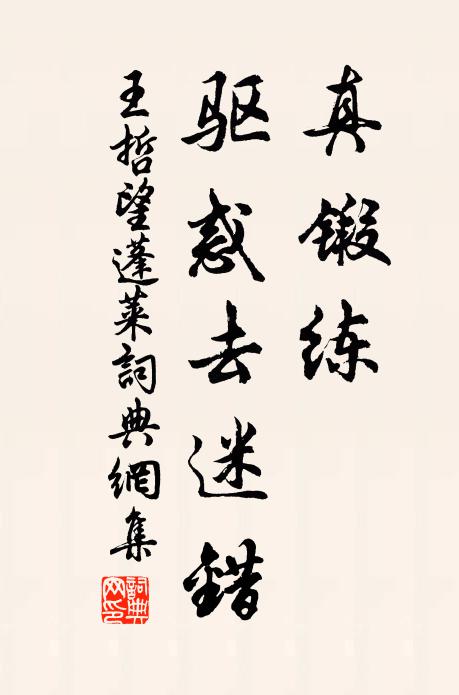 真锻练
驱惑去迷错
王哲望蓬莱詞典網集
詞典网印